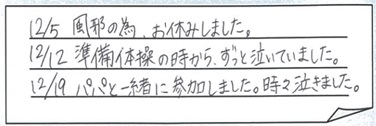 12/5 風邪の為、お休みしました。
12/12 準備体操の時から、ずっと泣いていました。
12/19 パパと一緒に参加しました。時々泣きました。